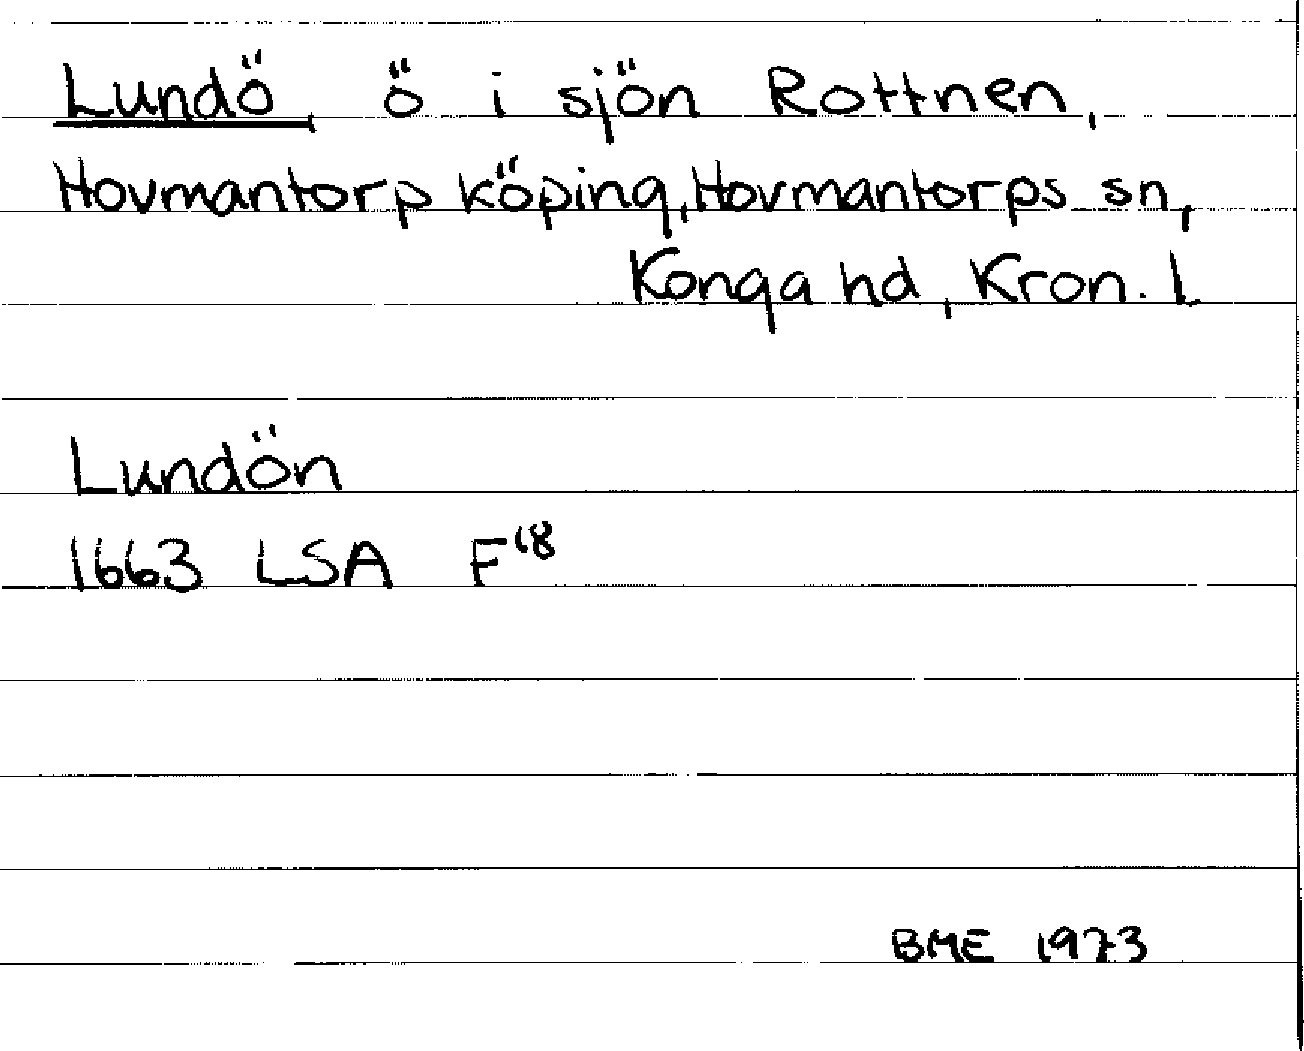 Lundö, ö i sjön Rottnen,
Hovmantorp köping, Hovmantorps sn,
Konga hd, Kron. l
Lundön
1663 LSA F 18
BME 1973